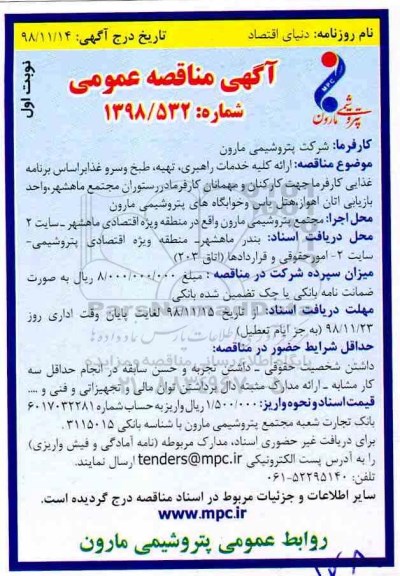 نام روزنامه: دنیای اقتصاد
تاریخ درج آگهی: ۹۸/۱۱/۱۴
نوبت اول
MPC
پتروشیمی مارون
آگهی مناقصه عمومی
شماره: ۱۳۹۸/۵۳۲
کارفرما: شرکت پتروشیمی مارون
موضوع مناقصه: ارائه کلیه خدمات راهبری، تهیه، طبخ وسرو غذابراساس برنامه
غذایی کارفرما جهت کارکنان و مهمانان کارفرمادررستوران مجتمع ماهشهر،واحد
بازیابی اتان اهواز،هتل یاس وخوابگاه های پتروشیمی مارون
محل اجرا: مجتمع پتروشیمی مارون واقع در منطقه ویژه اقتصادی ماهشهر ـ سایت ۲
محل دریافت اسناد: بندر ماهشهر- منطقه ویژه اقتصادی پتروشیمی-
سایت ۲- امورحقوقی و قراردادها (اتاق ۲۰۳)
میزان سپرده شرکت در مناقصه : مبلغ ۸/۰۰۰/۰۰۰/۰۰۰ ریال به صورت
ضمانت نامه بانکی یا چک تضمین شده بانکی
مهلت دریافت اسناد: از تاریخ ۹۸/۱۱/۱۵ لغایت پایان وقت اداری روز
۹۸/۱۱/۲۳ (به جز ایام تعطیل)
حداقل شرایط حضور در مناقصه:
داشتن شخصیت حقوقی ـ داشتن تجربه و حسن سابقه در انجام حداقل سه
کار مشابه ـ ارائه مدارک مثبته دال برداشتن توان مالی و تجهیزاتی و فنی و ....
قیمت اسناد و نحوه واریز: ۱/۵۰۰/۰۰۰ ریال واریز به حساب شماره ۶۰۱۷۰۳۲۲۸۱
بانک تجارت شعبه مجتمع پتروشیمی مارون با شناسه بانکی ۳۱۱۵۰۱۵.
برای دریافت غیر حضوری اسناد، مدارک مربوطه (نامه آمادگی و فیش واریزی)
را به آدرس پست الکترونیکی tenders@mpc.ir ارسال نمایند.
تلفن: ۵۲۲۹۵۱۴۰-۰۶۱
سایر اطلاعات و جزئیات مربوط در اسناد مناقصه درج گردیده است.
www.mpc.ir
روابط عمومی پتروشیمی مارون